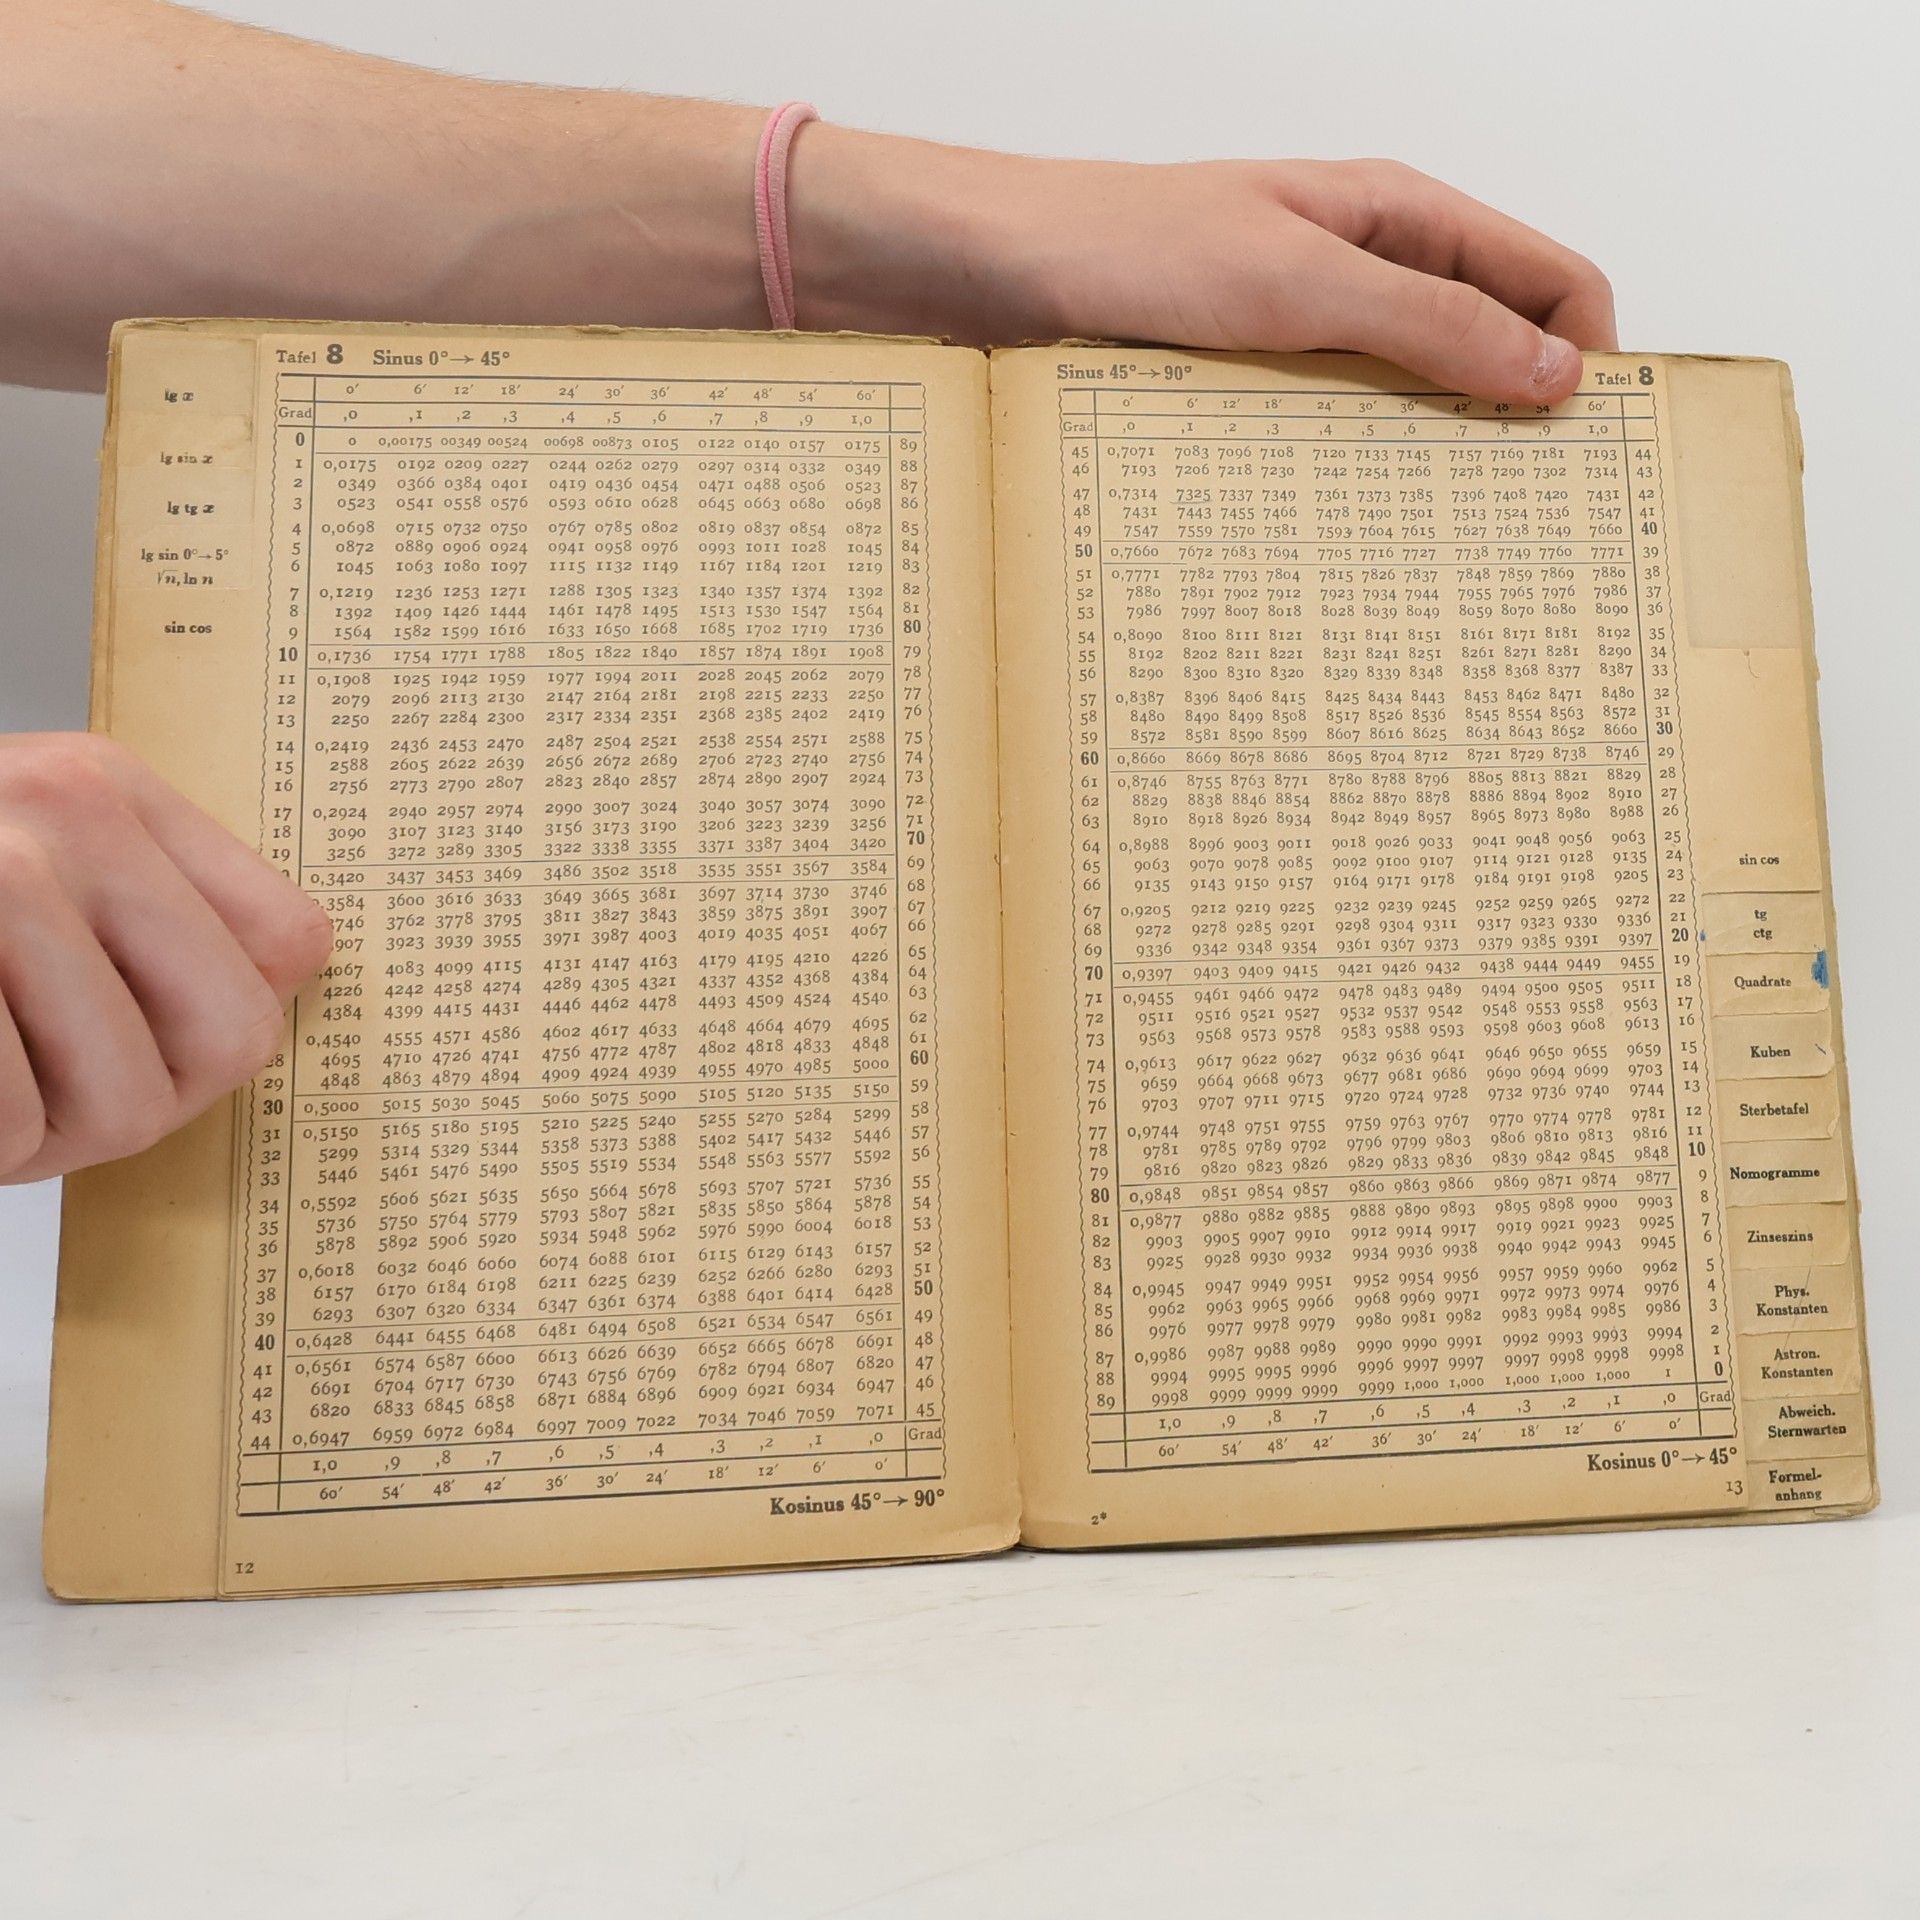 lg x
lg sin x
lg tg x
lg sin 0°→5°
√n, ln n
sin cos
Tafel 8 Sinus 0°→ 45°
0′ 6′ 12′ 18′ 24′ 30′ 36′ 42′ 48′ 54′ 60′
Grad ,0 ,1 ,2 ,3 ,4 ,5 ,6 ,7 ,8 ,9 1,0
0 0 0,00175 00349 00524 00698 00873 0105 0122 0140 0157 0175 89
1 0,0175 0192 0209 0227 0244 0262 0279 0297 0314 0332 0349 88
2 0349 0366 0384 0401 0419 0436 0454 0471 0488 0506 0523 87
3 0523 0541 0558 0576 0593 0610 0628 0645 0663 0680 0698 86
4 0,0698 0715 0732 0750 0767 0785 0802 0819 0837 0854 0872 85
5 0872 0889 0906 0924 0941 0958 0976 0993 1011 1028 1045 84
6 1045 1063 1080 1097 1115 1132 1149 1167 1184 1201 1219 83
7 0,1219 1236 1253 1271 1288 1305 1323 1340 1357 1374 1392 82
8 1392 1409 1426 1444 1461 1478 1495 1513 1530 1547 1564 81
9 1564 1582 1599 1616 1633 1650 1668 1685 1702 1719 1736 80
10 0,1736 1754 1771 1788 1805 1822 1840 1857 1874 1891 1908 79
11 0,1908 1925 1942 1959 1977 1994 2011 2028 2045 2062 2079 78
12 2079 2096 2113 2130 2147 2164 2181 2198 2215 2233 2250 77
13 2250 2267 2284 2300 2317 2334 2351 2368 2385 2402 2419 76
14 0,2419 2436 2453 2470 2487 2504 2521 2538 2554 2571 2588 75
15 2588 2605 2622 2639 2656 2672 2689 2706 2723 2740 2756 74
16 2756 2773 2790 2807 2823 2840 2857 2874 2890 2907 2924 73
17 0,2924 2940 2957 2974 2990 3007 3024 3040 3057 3074 3090 72
18 3090 3107 3123 3140 3156 3173 3190 3206 3223 3239 3256 71
19 3256 3272 3289 3305 3322 3338 3355 3371 3387 3404 3420 70
0,3420 3437 3453 3469 3486 3502 3518 3535 3551 3567 3584 69
,3584 3600 3616 3633 3649 3665 3681 3697 3714 3730 3746 68
3746 3762 3778 3795 3811 3827 3843 3859 3875 3891 3907 67
907 3923 3939 3955 3971 3987 4003 4019 4035 4051 4067 66
,4067 4083 4099 4115 4131 4147 4163 4179 4195 4210 4226 65
4226 4242 4258 4274 4289 4305 4321 4337 4352 4368 4384 64
4384 4399 4415 4431 4446 4462 4478 4493 4509 4524 4540 63
0,4540 4555 4571 4586 4602 4617 4633 4648 4664 4679 4695 62
28 4695 4710 4726 4741 4756 4772 4787 4802 4818 4833 4848 61
29 4848 4863 4879 4894 4909 4924 4939 4955 4970 4985 5000 60
30 0,5000 5015 5030 5045 5060 5075 5090 5105 5120 5135 5150 59
31 0,5150 5165 5180 5195 5210 5225 5240 5255 5270 5284 5299 58
32 5299 5314 5329 5344 5358 5373 5388 5402 5417 5432 5446 57
33 5446 5461 5476 5490 5505 5519 5534 5548 5563 5577 5592 56
34 0,5592 5606 5621 5635 5650 5664 5678 5693 5707 5721 5736 55
35 5736 5750 5764 5779 5793 5807 5821 5835 5850 5864 5878 54
36 5878 5892 5906 5920 5934 5948 5962 5976 5990 6004 6018 53
37 0,6018 6032 6046 6060 6074 6088 6101 6115 6129 6143 6157 52
38 6157 6170 6184 6198 6211 6225 6239 6252 6266 6280 6293 51
39 6293 6307 6320 6334 6347 6361 6374 6388 6401 6414 6428 50
40 0,6428 6441 6455 6468 6481 6494 6508 6521 6534 6547 6561 49
41 0,6561 6574 6587 6600 6613 6626 6639 6652 6665 6678 6691 48
42 6691 6704 6717 6730 6743 6756 6769 6782 6794 6807 6820 47
43 6820 6833 6845 6858 6871 6884 6896 6909 6921 6934 6947 46
44 0,6947 6959 6972 6984 6997 7009 7022 7034 7046 7059 7071 45
1,0 ,9 ,8 ,7 ,6 ,5 ,4 ,3 ,2 ,1 ,0 Grad
60′ 54′ 48′ 42′ 36′ 30′ 24′ 18′ 12′ 6′ 0′
Kosinus 45°→ 90°
12
Sinus 45°→ 90° Tafel 8
0′ 6′ 12′ 18′ 24′ 30′ 36′ 42′ 48′ 54′ 60′
Grad ,0 ,1 ,2 ,3 ,4 ,5 ,6 ,7 ,8 ,9 1,0
45 0,7071 7083 7096 7108 7120 7133 7145 7157 7169 7181 7193 44
46 7193 7206 7218 7230 7242 7254 7266 7278 7290 7302 7314 43
47 0,7314 7325 7337 7349 7361 7373 7385 7396 7408 7420 7431 42
48 7431 7443 7455 7466 7478 7490 7501 7513 7524 7536 7547 41
49 7547 7559 7570 7581 7593 7604 7615 7627 7638 7649 7660 40
50 0,7660 7672 7683 7694 7705 7716 7727 7738 7749 7760 7771 39
51 0,7771 7782 7793 7804 7815 7826 7837 7848 7859 7869 7880 38
52 7880 7891 7902 7912 7923 7934 7944 7955 7965 7976 7986 37
53 7986 7997 8007 8018 8028 8039 8049 8059 8070 8080 8090 36
54 0,8090 8100 8111 8121 8131 8141 8151 8161 8171 8181 8192 35
55 8192 8202 8211 8221 8231 8241 8251 8261 8271 8281 8290 34
56 8290 8300 8310 8320 8329 8339 8348 8358 8368 8377 8387 33
57 0,8387 8396 8406 8415 8425 8434 8443 8453 8462 8471 8480 32
58 8480 8490 8499 8508 8517 8526 8536 8545 8554 8563 8572 31
59 8572 8581 8590 8599 8607 8616 8625 8634 8643 8652 8660 30
60 0,8660 8669 8678 8686 8695 8704 8712 8721 8729 8738 8746 29
61 0,8746 8755 8763 8771 8780 8788 8796 8805 8813 8821 8829 28
62 8829 8838 8846 8854 8862 8870 8878 8886 8894 8902 8910 27
63 8910 8918 8926 8934 8942 8949 8957 8965 8973 8980 8988 26
64 0,8988 8996 9003 9011 9018 9026 9033 9041 9048 9056 9063 25
65 9063 9070 9078 9085 9092 9100 9107 9114 9121 9128 9135 24
66 9135 9143 9150 9157 9164 9171 9178 9184 9191 9198 9205 23
67 0,9205 9212 9219 9225 9232 9239 9245 9252 9259 9265 9272 22
68 9272 9278 9285 9291 9298 9304 9311 9317 9323 9330 9336 21
69 9336 9342 9348 9354 9361 9367 9373 9379 9385 9391 9397 20
70 0,9397 9403 9409 9415 9421 9426 9432 9438 9444 9449 9455 19
71 0,9455 9461 9466 9472 9478 9483 9489 9494 9500 9505 9511 18
72 9511 9516 9521 9527 9532 9537 9542 9548 9553 9558 9563 17
73 9563 9568 9573 9578 9583 9588 9593 9598 9603 9608 9613 16
74 0,9613 9617 9622 9627 9632 9636 9641 9646 9650 9655 9659 15
75 9659 9664 9668 9673 9677 9681 9686 9690 9694 9699 9703 14
76 9703 9707 9711 9715 9720 9724 9728 9732 9736 9740 9744 13
77 0,9744 9748 9751 9755 9759 9763 9767 9770 9774 9778 9781 12
78 9781 9785 9789 9792 9796 9799 9803 9806 9810 9813 9816 11
79 9816 9820 9823 9826 9829 9833 9836 9839 9842 9845 9848 10
80 0,9848 9851 9854 9857 9860 9863 9866 9869 9871 9874 9877 9
81 0,9877 9880 9882 9885 9888 9890 9893 9895 9898 9900 9903 8
82 9903 9905 9907 9910 9912 9914 9917 9919 9921 9923 9925 7
83 9925 9928 9930 9932 9934 9936 9938 9940 9942 9943 9945 6
84 0,9945 9947 9949 9951 9952 9954 9956 9957 9959 9960 9962 5
85 9962 9963 9965 9966 9968 9969 9971 9972 9973 9974 9976 4
86 9976 9977 9978 9979 9980 9981 9982 9983 9984 9985 9986 3
87 0,9986 9987 9988 9989 9990 9990 9991 9992 9993 9993 9994 2
88 9994 9995 9995 9996 9996 9997 9997 9997 9998 9998 9998 1
89 9998 9999 9999 9999 9999 1,000 1,000 1,000 1,000 1,000 1 0
1,0 ,9 ,8 ,7 ,6 ,5 ,4 ,3 ,2 ,1 ,0 Grad
60′ 54′ 48′ 42′ 36′ 30′ 24′ 18′ 12′ 6′ 0′
Kosinus 0°→ 45°
2* 13
sin cos
tg
ctg
Quadrate
Kuben
Sterbetafel
Nomogramme
Zinseszins
Phys.
Konstanten
Astron.
Konstanten
Abweich.
Sternwarten
Formel-
anhang